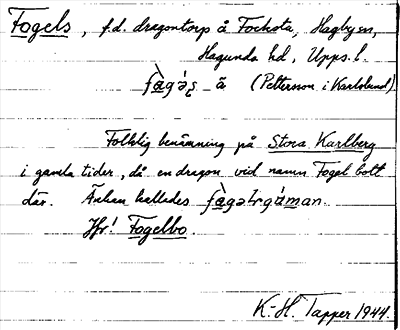 Fogels, f.d. dragontorp å Focksta, Hagby sn,
Hagunda hd, Upps. l.
fɑ̀gə́ʂ ‿ ä (Pettersson i Karlslund)
Folklig benämning på Stora Karlberg
i gamla tider, då en dragon vid namn Fogel bott
där. Änkan kallades
Jfr! Fogelbo.
K.-H. Tapper 1944.